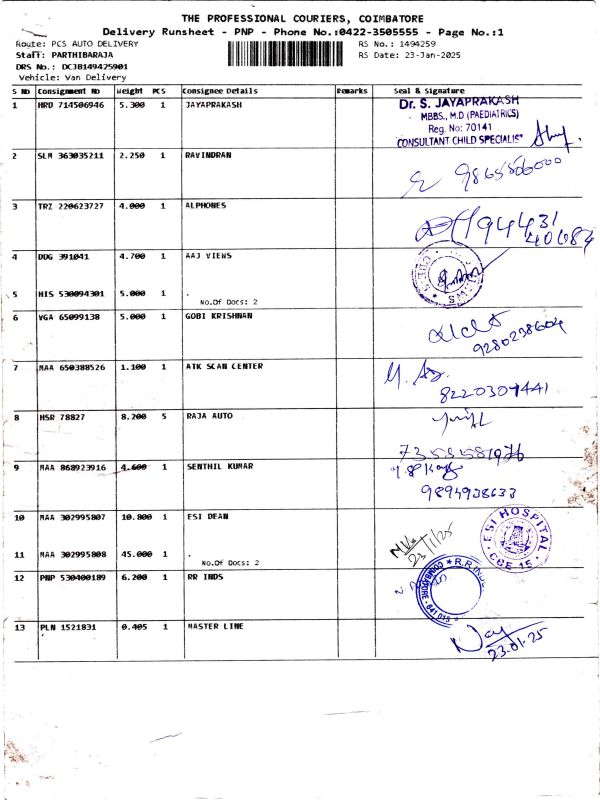 THE PROFESSIONAL COURIERS, COIMBATORE
Delivery Runsheet - PNP - Phone No.:0422-3505555 - Page No.:1
Route: PCS AUTO DELIVERY RS No.: 1494259
Staff: PARTHIBARAJA RS Date: 23-Jan-2025
DRS No.: DCJB149425901
Vehicle: Van Delivery
S No Consignment No Weight PCS Consignee Details Remarks Seal & Signature
1 HRD 714506946 5.300 1 JAYAPRAKASH
Dr. S. JAYAPRAKASH
MBBS., M.D (PAEDIATRICS)
Reg. No: 70141
CONSULTANT CHILD SPECIALIST
2 SLM 363035211 2.250 1 RAVINDRAN
3 TRZ 220623727 4.000 1 ALPHONES
94431
40684
4 DDG 391041 4.700 1 AAJ VIEWS
5 HIS 530094301 5.000 1 .
No.Of Docs: 2
6 VGA 65099138 5.000 1 GOBI KRISHNAN
9280238604
7 MAA 650388526 1.100 1 ATK SCAN CENTER
8220307441
8 HSR 78827 8.200 5 RAJA AUTO
9 MAA 868923916 4.600 1 SENTHIL KUMAR
9894938633
10 MAA 302995807 10.800 1 ESI DEAN
23/1/25
ESI HOSPITAL
CBE-15
11 MAA 302995808 45.000 1 .
No.Of Docs: 2
12 PNP 530400189 6.200 1 RR INDS
R.R.INDS
COIMBATORE - 641 015
13 PLN 1521831 0.405 1 MASTER LINE
23.01.25